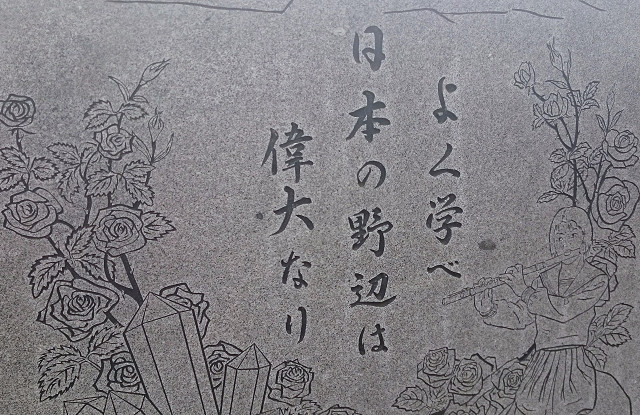 よく学べ
日本の野辺は
偉大なり